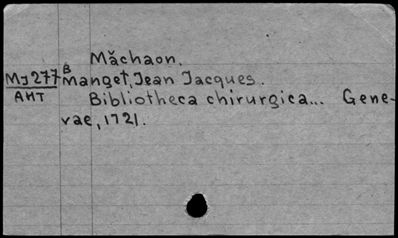 Măchaon.
MJ277 B Manget, Jean Jacques.
AHT Bibliotheca chirurgica... Gene-
vae, 1721.